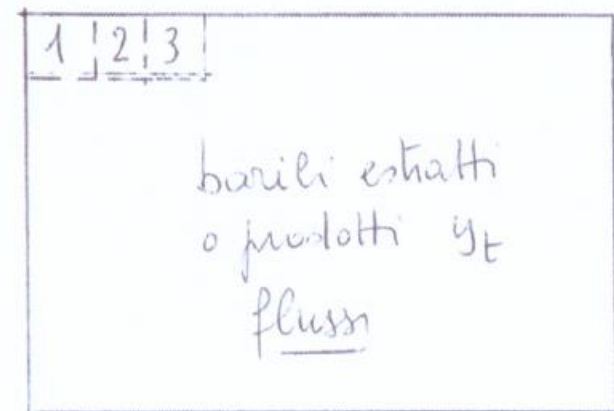 1 2 3
barili estratti
o prodotti yt
flussi